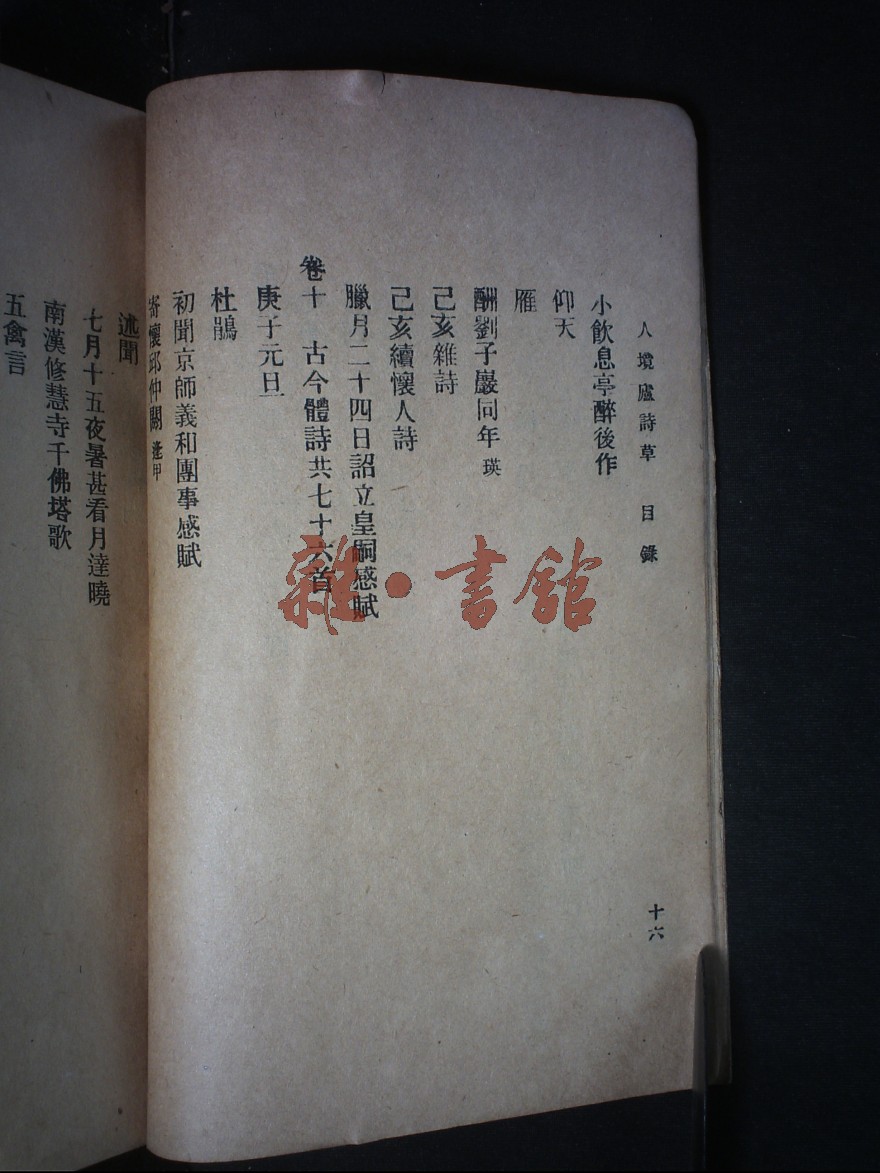 人境廬詩草 目錄
十六
小飲息亭醉後作
仰天
雁
酬劉子巖同年瑛
己亥雜詩
己亥續懷人詩
臘月二十四日詔立皇嗣感賦
卷十 古今體詩共七十六首
庚子元旦
杜鵑
初聞京師義和團事感賦
寄懷邱仲閼逢甲
述聞
七月十五夜暑甚看月達曉
南漢修慧寺千佛塔歌
五禽言
雜·書館